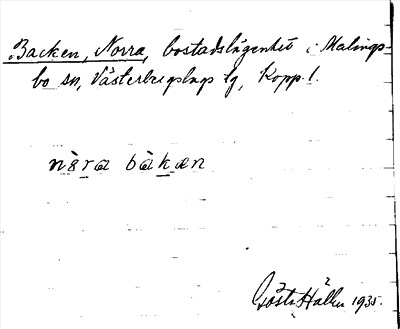 Backen, Norra, bostadslägenhet i Malings-
bo sn, Västerbergslags tg, Kopp. l.
nè̱ra bàḵæn
Gösta Hallin 1935.